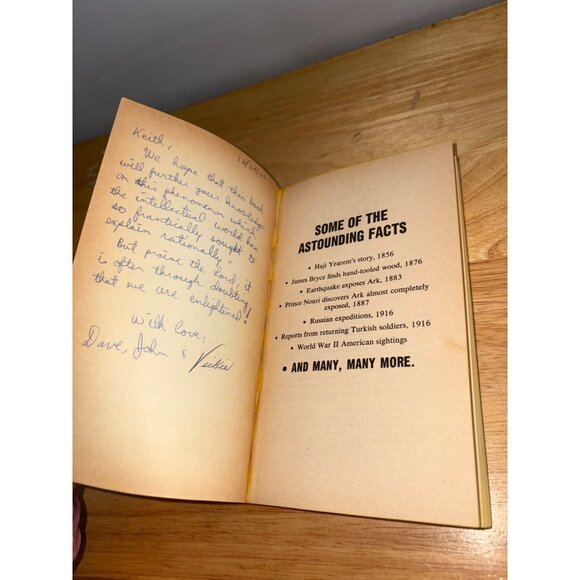 Keith,
We hope that this book
will further your knowledge
on this phenomenon which
the intellectual world has
so frantically sought to
explain rationally.
But praise the Lord, it
is often through doubting
that we are enlightened!
With love,
Dave, John & Vickie
SOME OF THE
ASTOUNDING FACTS
• Haji Yearem's story, 1856
• James Bryce finds hand-tooled wood, 1876
• Earthquake exposes Ark, 1883
• Prince Nouri discovers Ark almost completely
exposed, 1887
• Russian expeditions, 1916
• Reports from returning Turkish soldiers, 1916
• World War II American sightings
• AND MANY, MANY MORE.